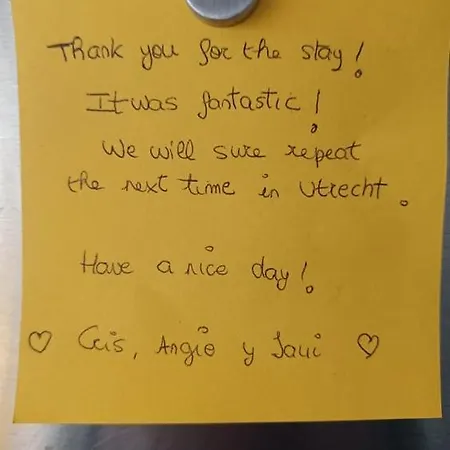 Thank you for the stay!
It was fantastic!
We will sure repeat
the next time in Utrecht.
Have a nice day!
♡ Cris, Angie y Javi ♡